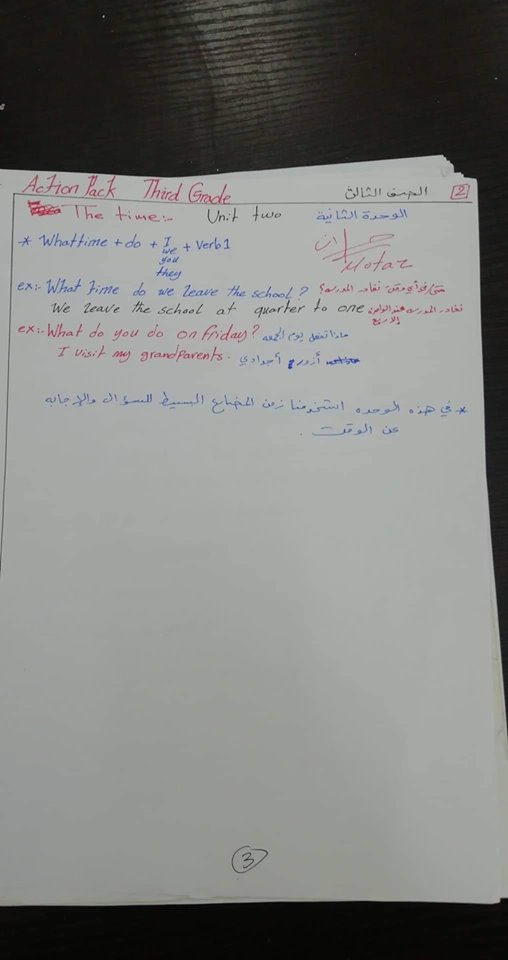 Action Pack Third Grade الصف الثالث 2
The time:- Unit two الوحدة الثانية
* What time + do + I + Verb1
we
you
they
Motaz
ex:- What time do we leave the school? متى نغادر المدرسه؟
We leave the school at quarter to one نغادر المدرسه عند الواحده
إلا ربع
ex:- What do you do on friday? ماذا تفعل يوم الجمعه
I visit my grandparents. أزور أجدادي
* في هذه الوحده استخدمنا زمن المضارع البسيط للسؤال والإجابه
عن الوقت.
3